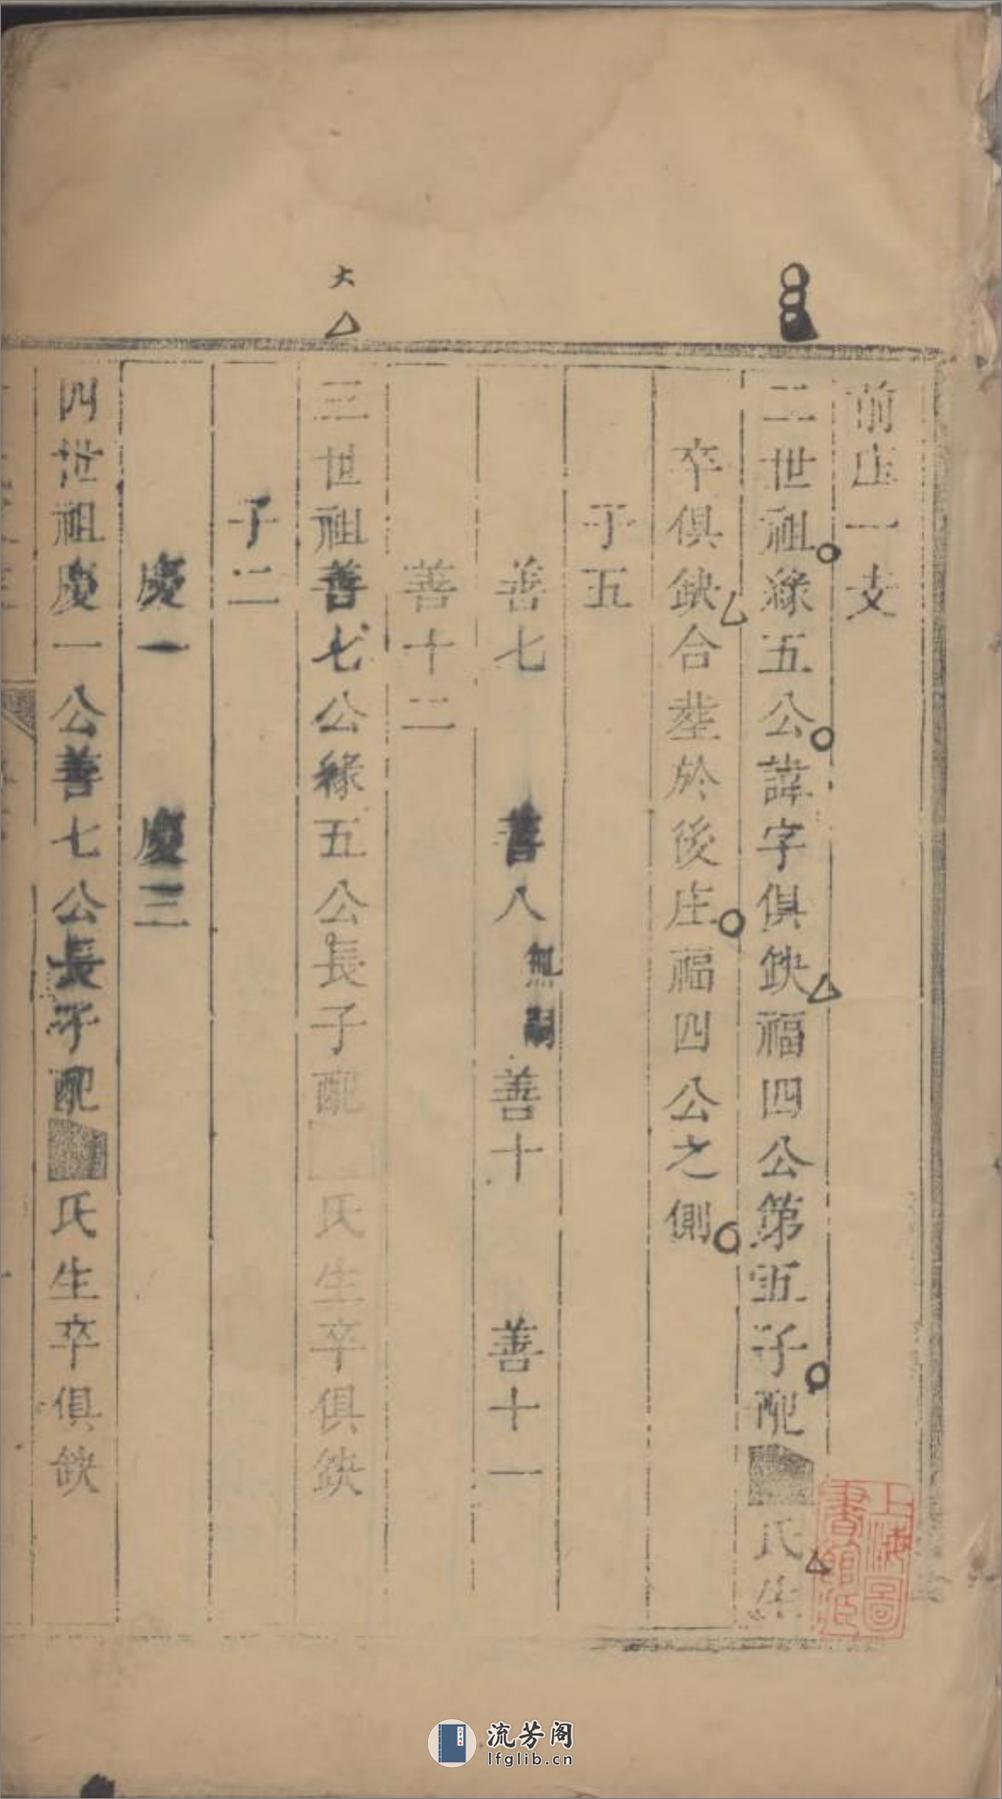 前庄一支
二世祖緣五公諱字俱缺福四公第五子配氏
卒俱缺合塟於後庄福四公之側
子五
善七 善八無嗣 善十 善十一
善十二
大
三世祖善七公緣五公長子配 氏生卒俱缺
子二
慶一 慶三
四世祖慶一公善七公長子配 氏生卒俱缺
上海圖書館藏
流芳阁
lfglib.cn